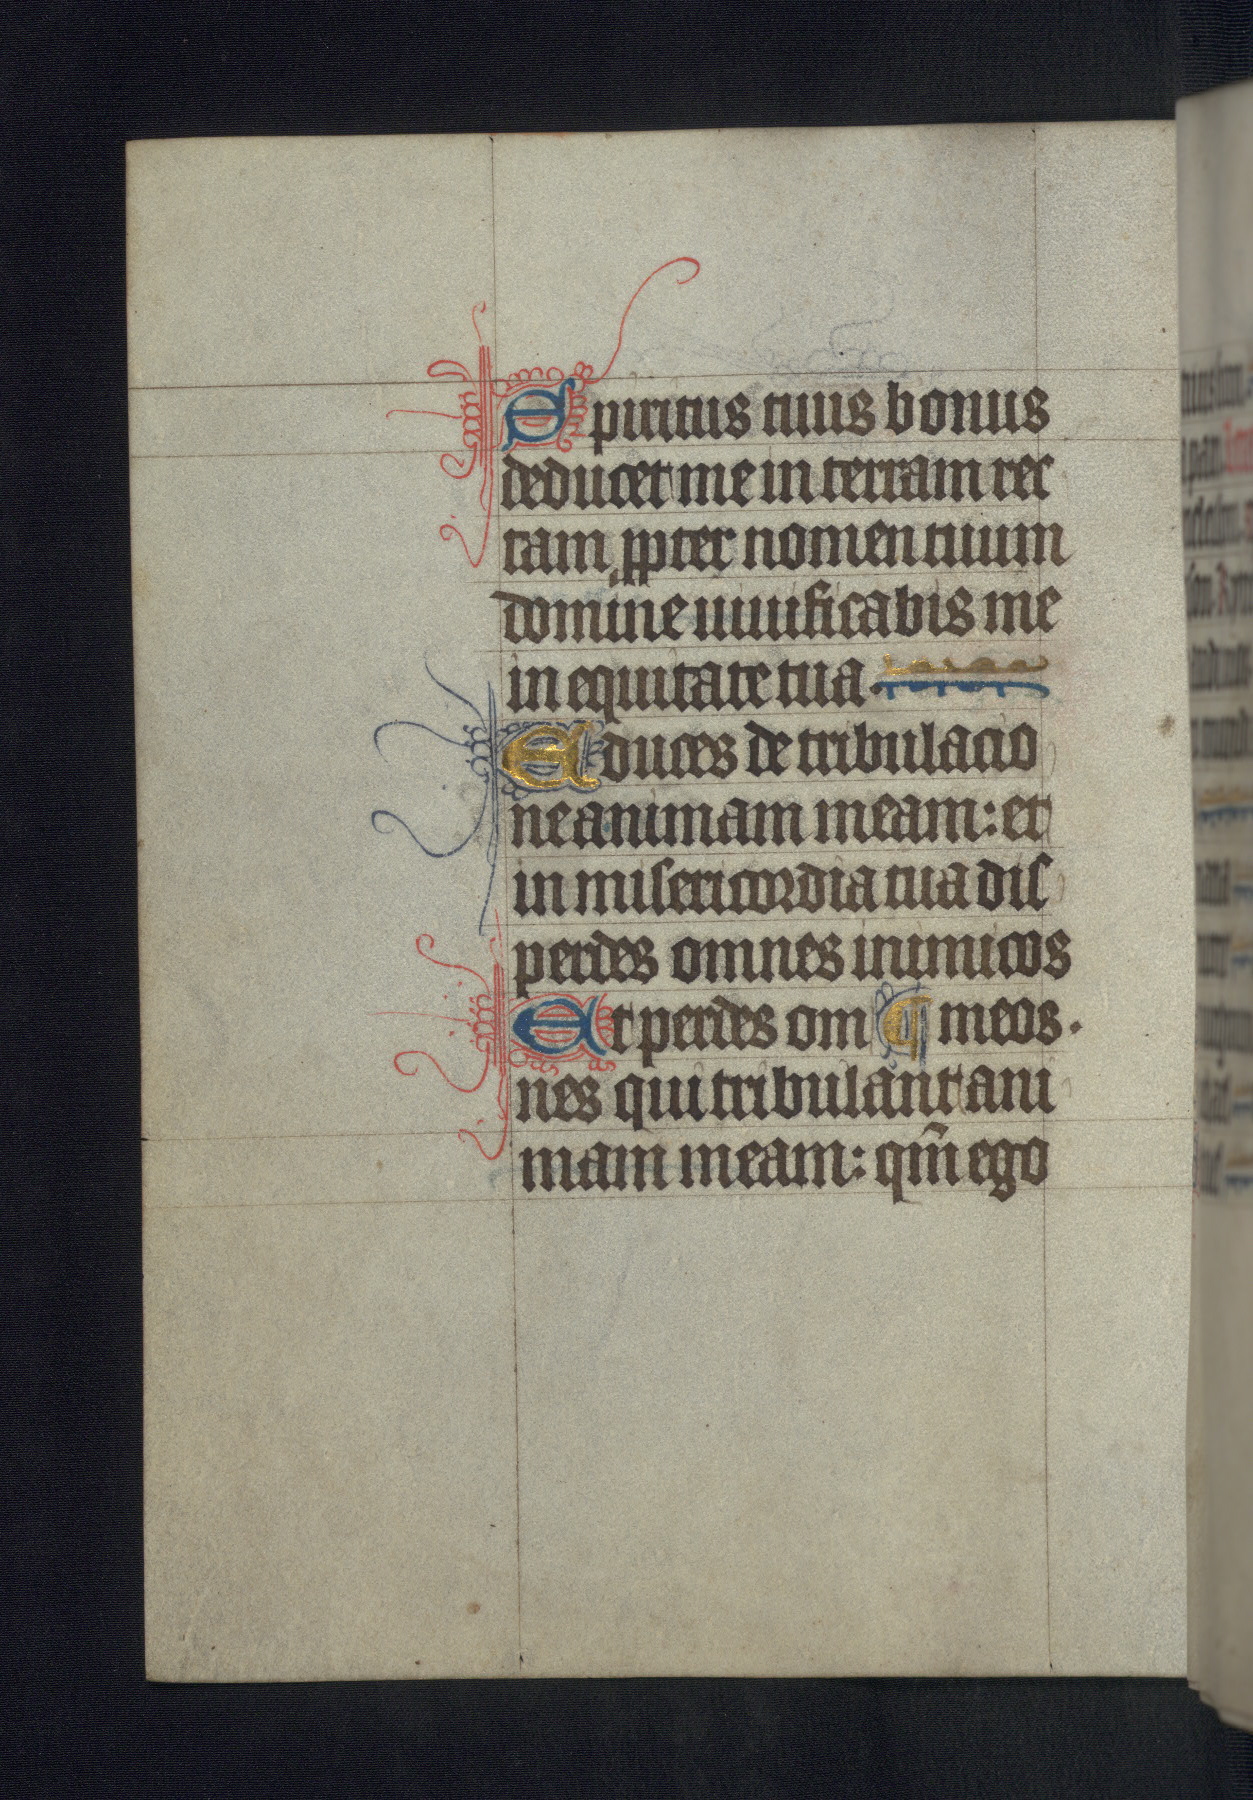 Spiritus tuus bonus
deducet me in terram rec
tam ꝓpter nomen tuum
domine uiuificabis me
in equitate tua.
Educes de tribulacio
ne animam meam: et
in misericordia tua dis
perdes omnes inimicos
Et perdes om ¶ meos.
nes qui tribulant ani
mam meam: qm̄ ego